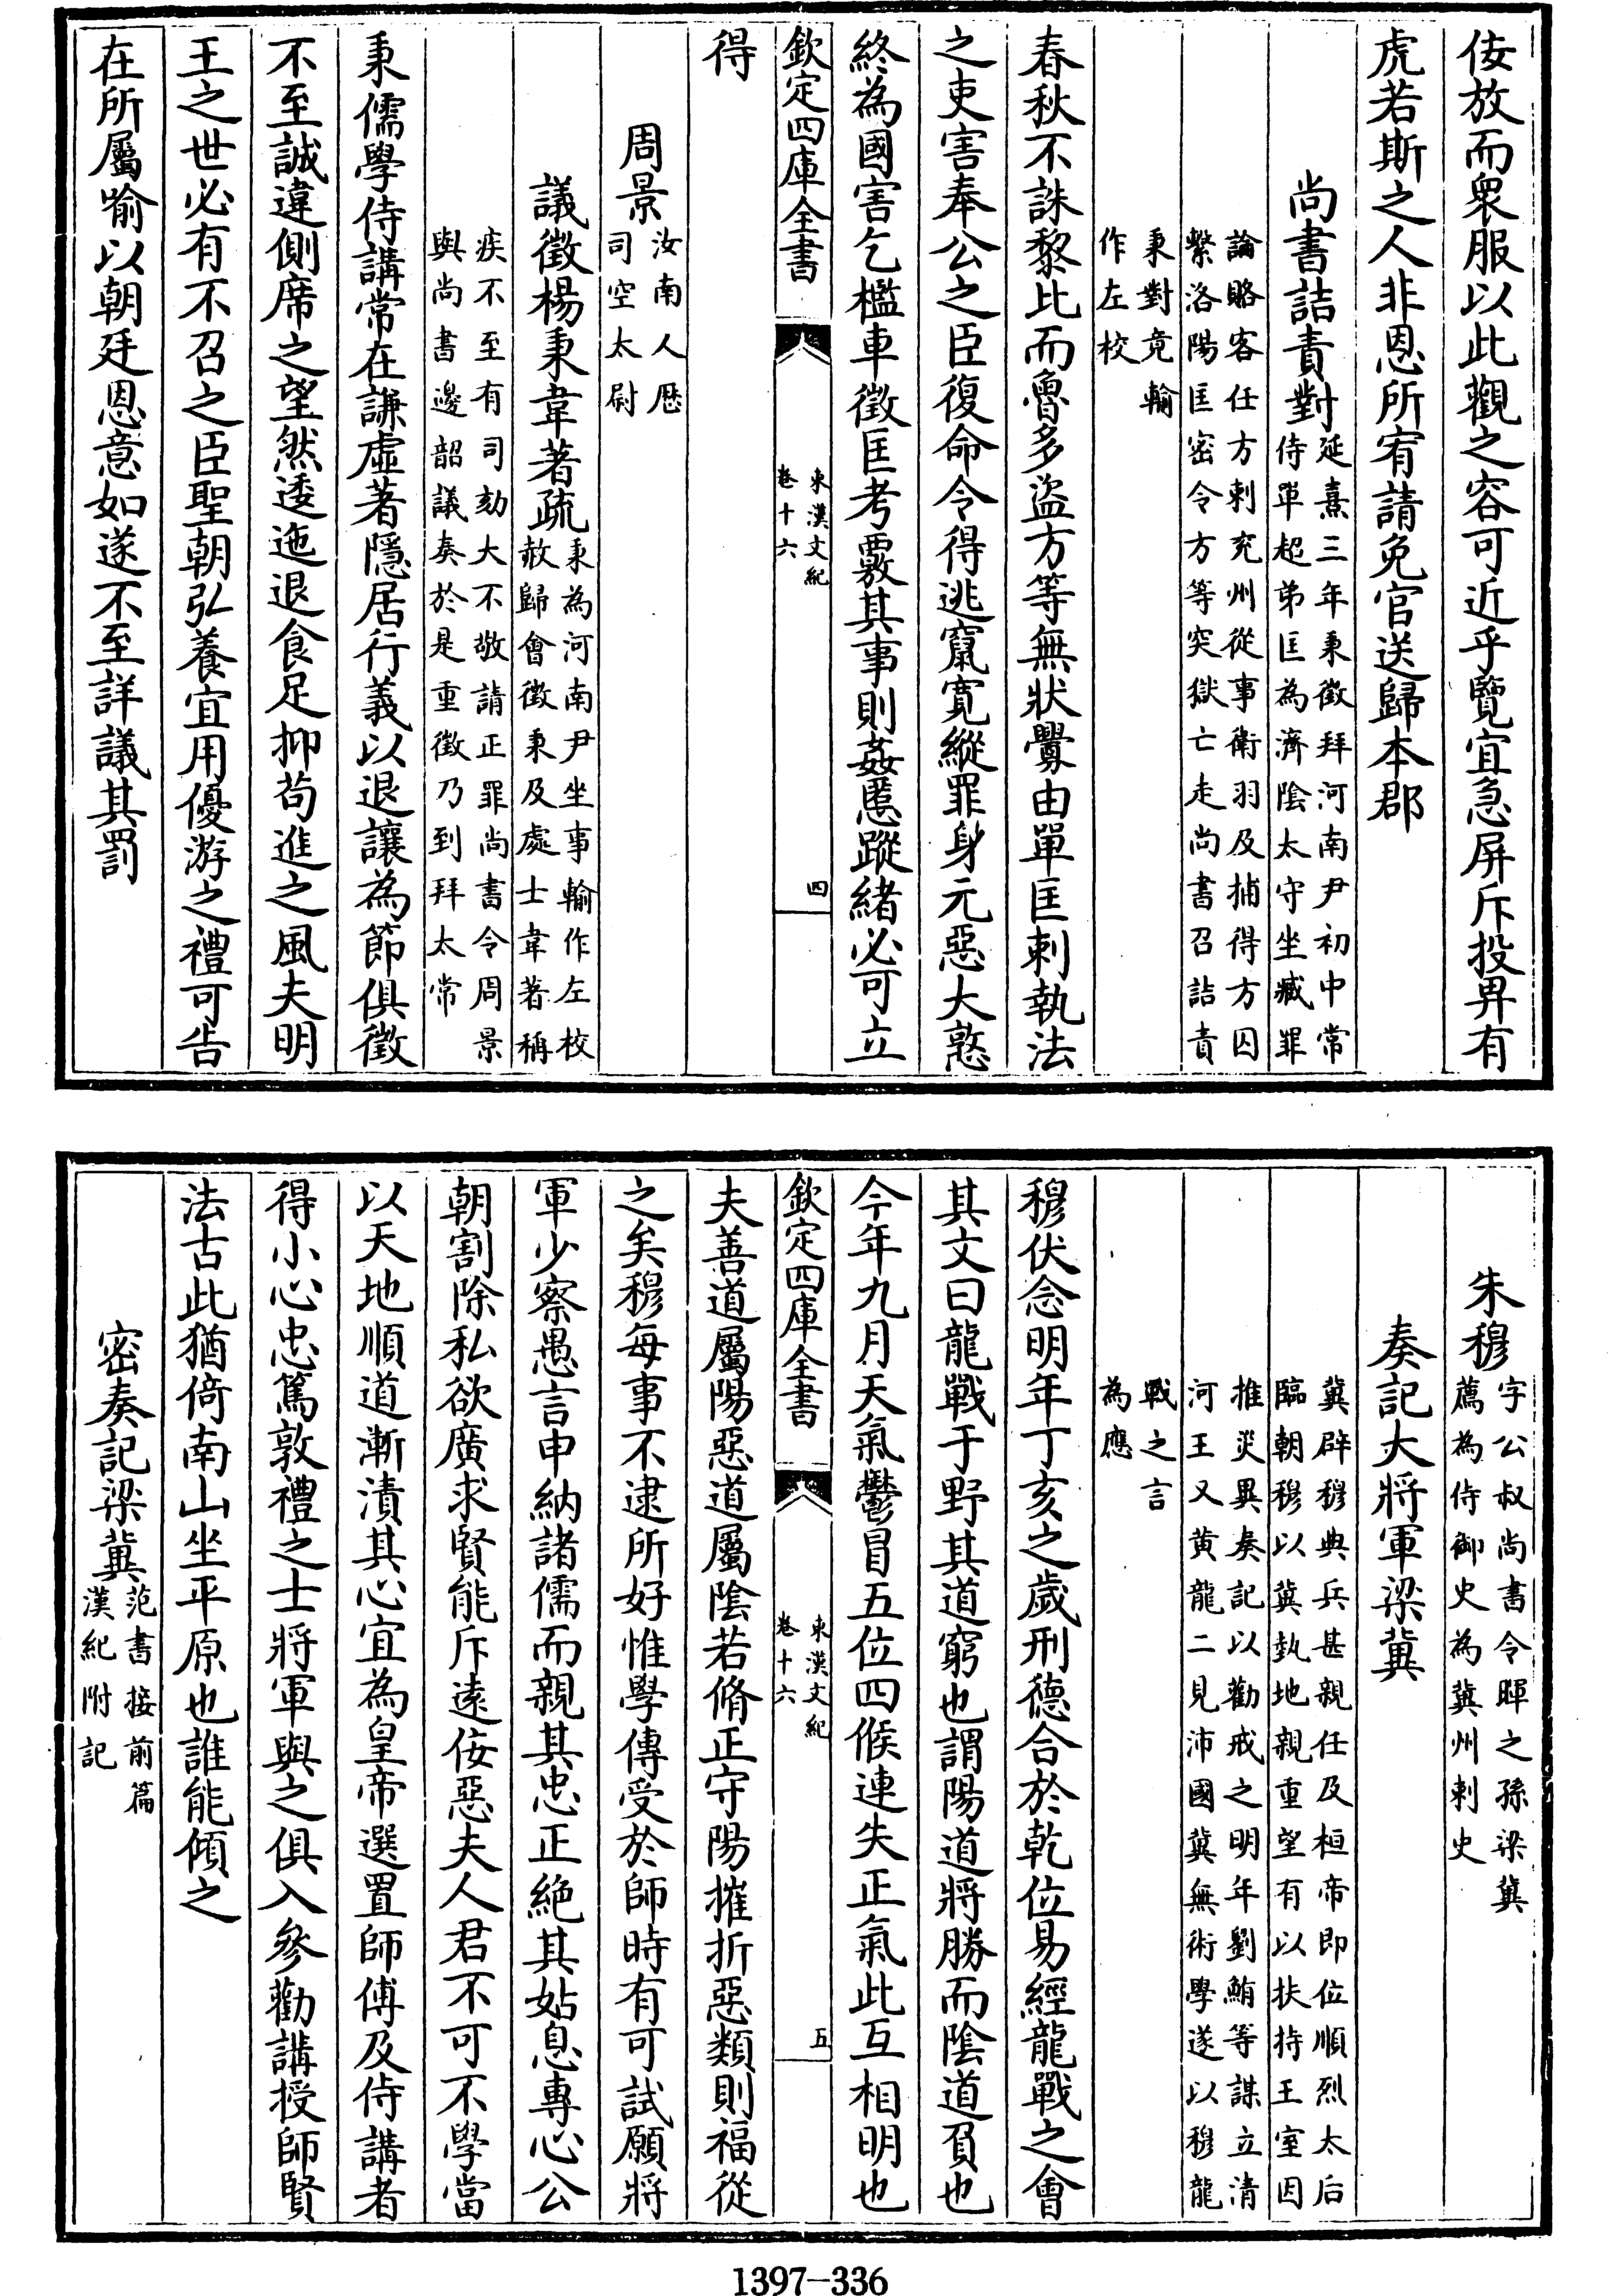 佞放而衆服以此觀之容可近乎覽宜急屏斥投畀有
虎若斯之人非恩所宥請免官送歸本郡
尚書詰責對
延熹三年秉徵拜河南尹初中常
侍單超弟匡為濟隂太守坐臧罪
論賂客任方刺兖州從事衛羽及捕得方囚
繫洛陽匡密令方等突獄亡走尚書召詰責
秉對竟輸
作左校
春秋不誅黎比而魯多盜方等無狀釁由單匡刺執法
之吏害奉公之臣復命令得逃竄寛縱罪身元惡大憝
終為國害乞檻車徵匡考覈其事則姦慝蹤緒必可立
欽定四庫全書
東漢文紀
卷十六
四
得
周景
汝南人歷
司空太尉
議徵楊秉韋著疏
秉為河南尹坐事輸作左校
赦歸會徵秉及處士韋著稱
疾不至有司劾大不敬請正罪尚書令周景
與尚書邊韶議奏於是重徵乃到拜太常
秉儒學侍講常在謙虛著隱居行義以退讓為節俱徵
不至誠違側席之望然逶迤退食足抑苟進之風夫明
王之世必有不召之臣聖朝弘養宜用優游之禮可告
在所屬喻以朝廷恩意如遂不至詳議其罰
朱穆
字公叔尚書令暉之孫梁冀
薦為侍御史為冀州刺史
奏記大將軍梁冀
冀辟穆典兵甚親任及桓帝即位順烈太后
臨朝穆以冀埶地親重望有以扶持王室因
推災異奏記以勸戒之明年劉鮪等謀立清
河王又黄龍二見沛國冀無術學遂以穆龍
戰之言
為應
穆伏念明年丁亥之歲刑德合於乾位易經龍戰之會
其文曰龍戰于野其道窮也謂陽道將勝而隂道負也
今年九月天氣鬱冒五位四候連失正氣此互相明也
欽定四庫全書
東漢文紀
卷十六
五
夫善道屬陽惡道屬隂若脩正守陽摧折惡類則福從
之矣穆每事不逮所好惟學傳受於師時有可試願將
軍少察愚言申納諸儒而親其忠正絶其姑息專心公
朝割除私欲廣求賢能斥遠佞惡夫人君不可不學當
以天地順道漸漬其心宜為皇帝選置師傅及侍講者
得小心忠篤敦禮之士將軍與之俱入參勸講授師賢
法古此猶倚南山坐平原也誰能傾之
密奏記梁冀
范書接前篇
漢紀附記
1397-336